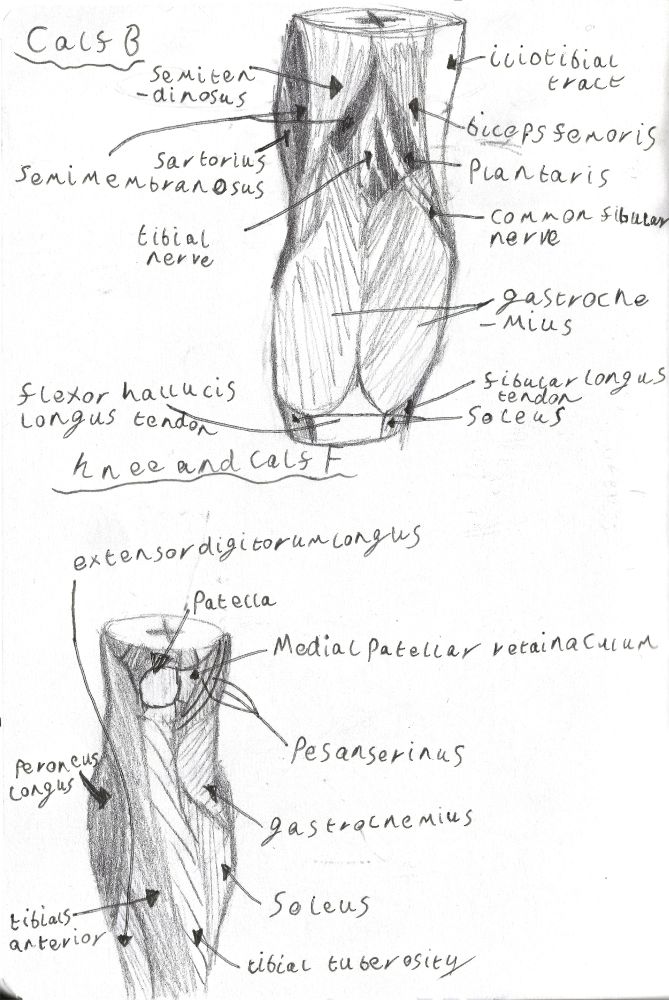 Calf B
semiten
-dinosus
iliotibial
tract
biceps femoris
sartorius
semimembranosus
Plantaris
tibial
nerve
common fibular
nerve
gastrocne
-mius
flexor hallucis
longus tendon
fibular longus
tendon
soleus
knee and calf F
extensor digitorum longus
Patella
Medial Patellar retainaculum
Pes anserinus
Peroneus
longus
gastrocnemius
Soleus
tibials
anterior
tibial tuberosity